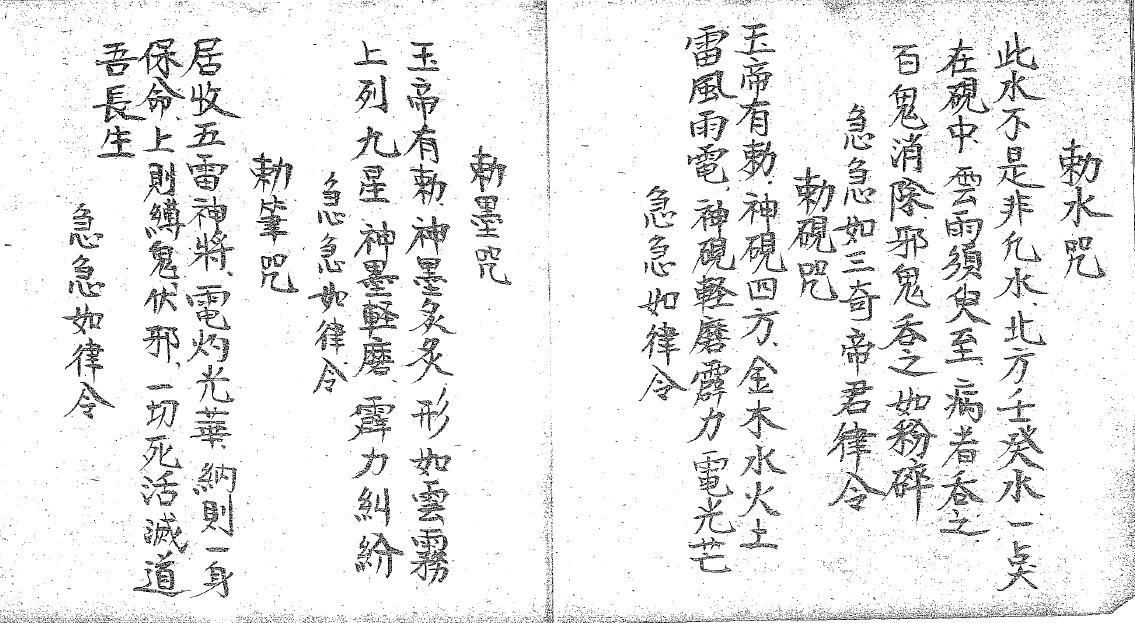 勅水咒
此水不是非凡水、北方壬癸水、一点
在硯中、雲雨須臾至、病者吞之、
百鬼消除、邪鬼吞之如粉碎
急急如三奇帝君律令
勅硯咒
玉帝有勅、神硯四方、金木水火土
雷風雨電、神硯軽磨霹力電光芒
急急如律令
勅墨咒
玉帝有勅神墨炙炙形如雲霧
上列九星神墨軽磨、霹力糾紛
急急如律令
勅筆咒
居收五雷神將、電灼光華、納則一身
保命、上則縛鬼伏邪、一切死活滅道
吾長生
急急如律令